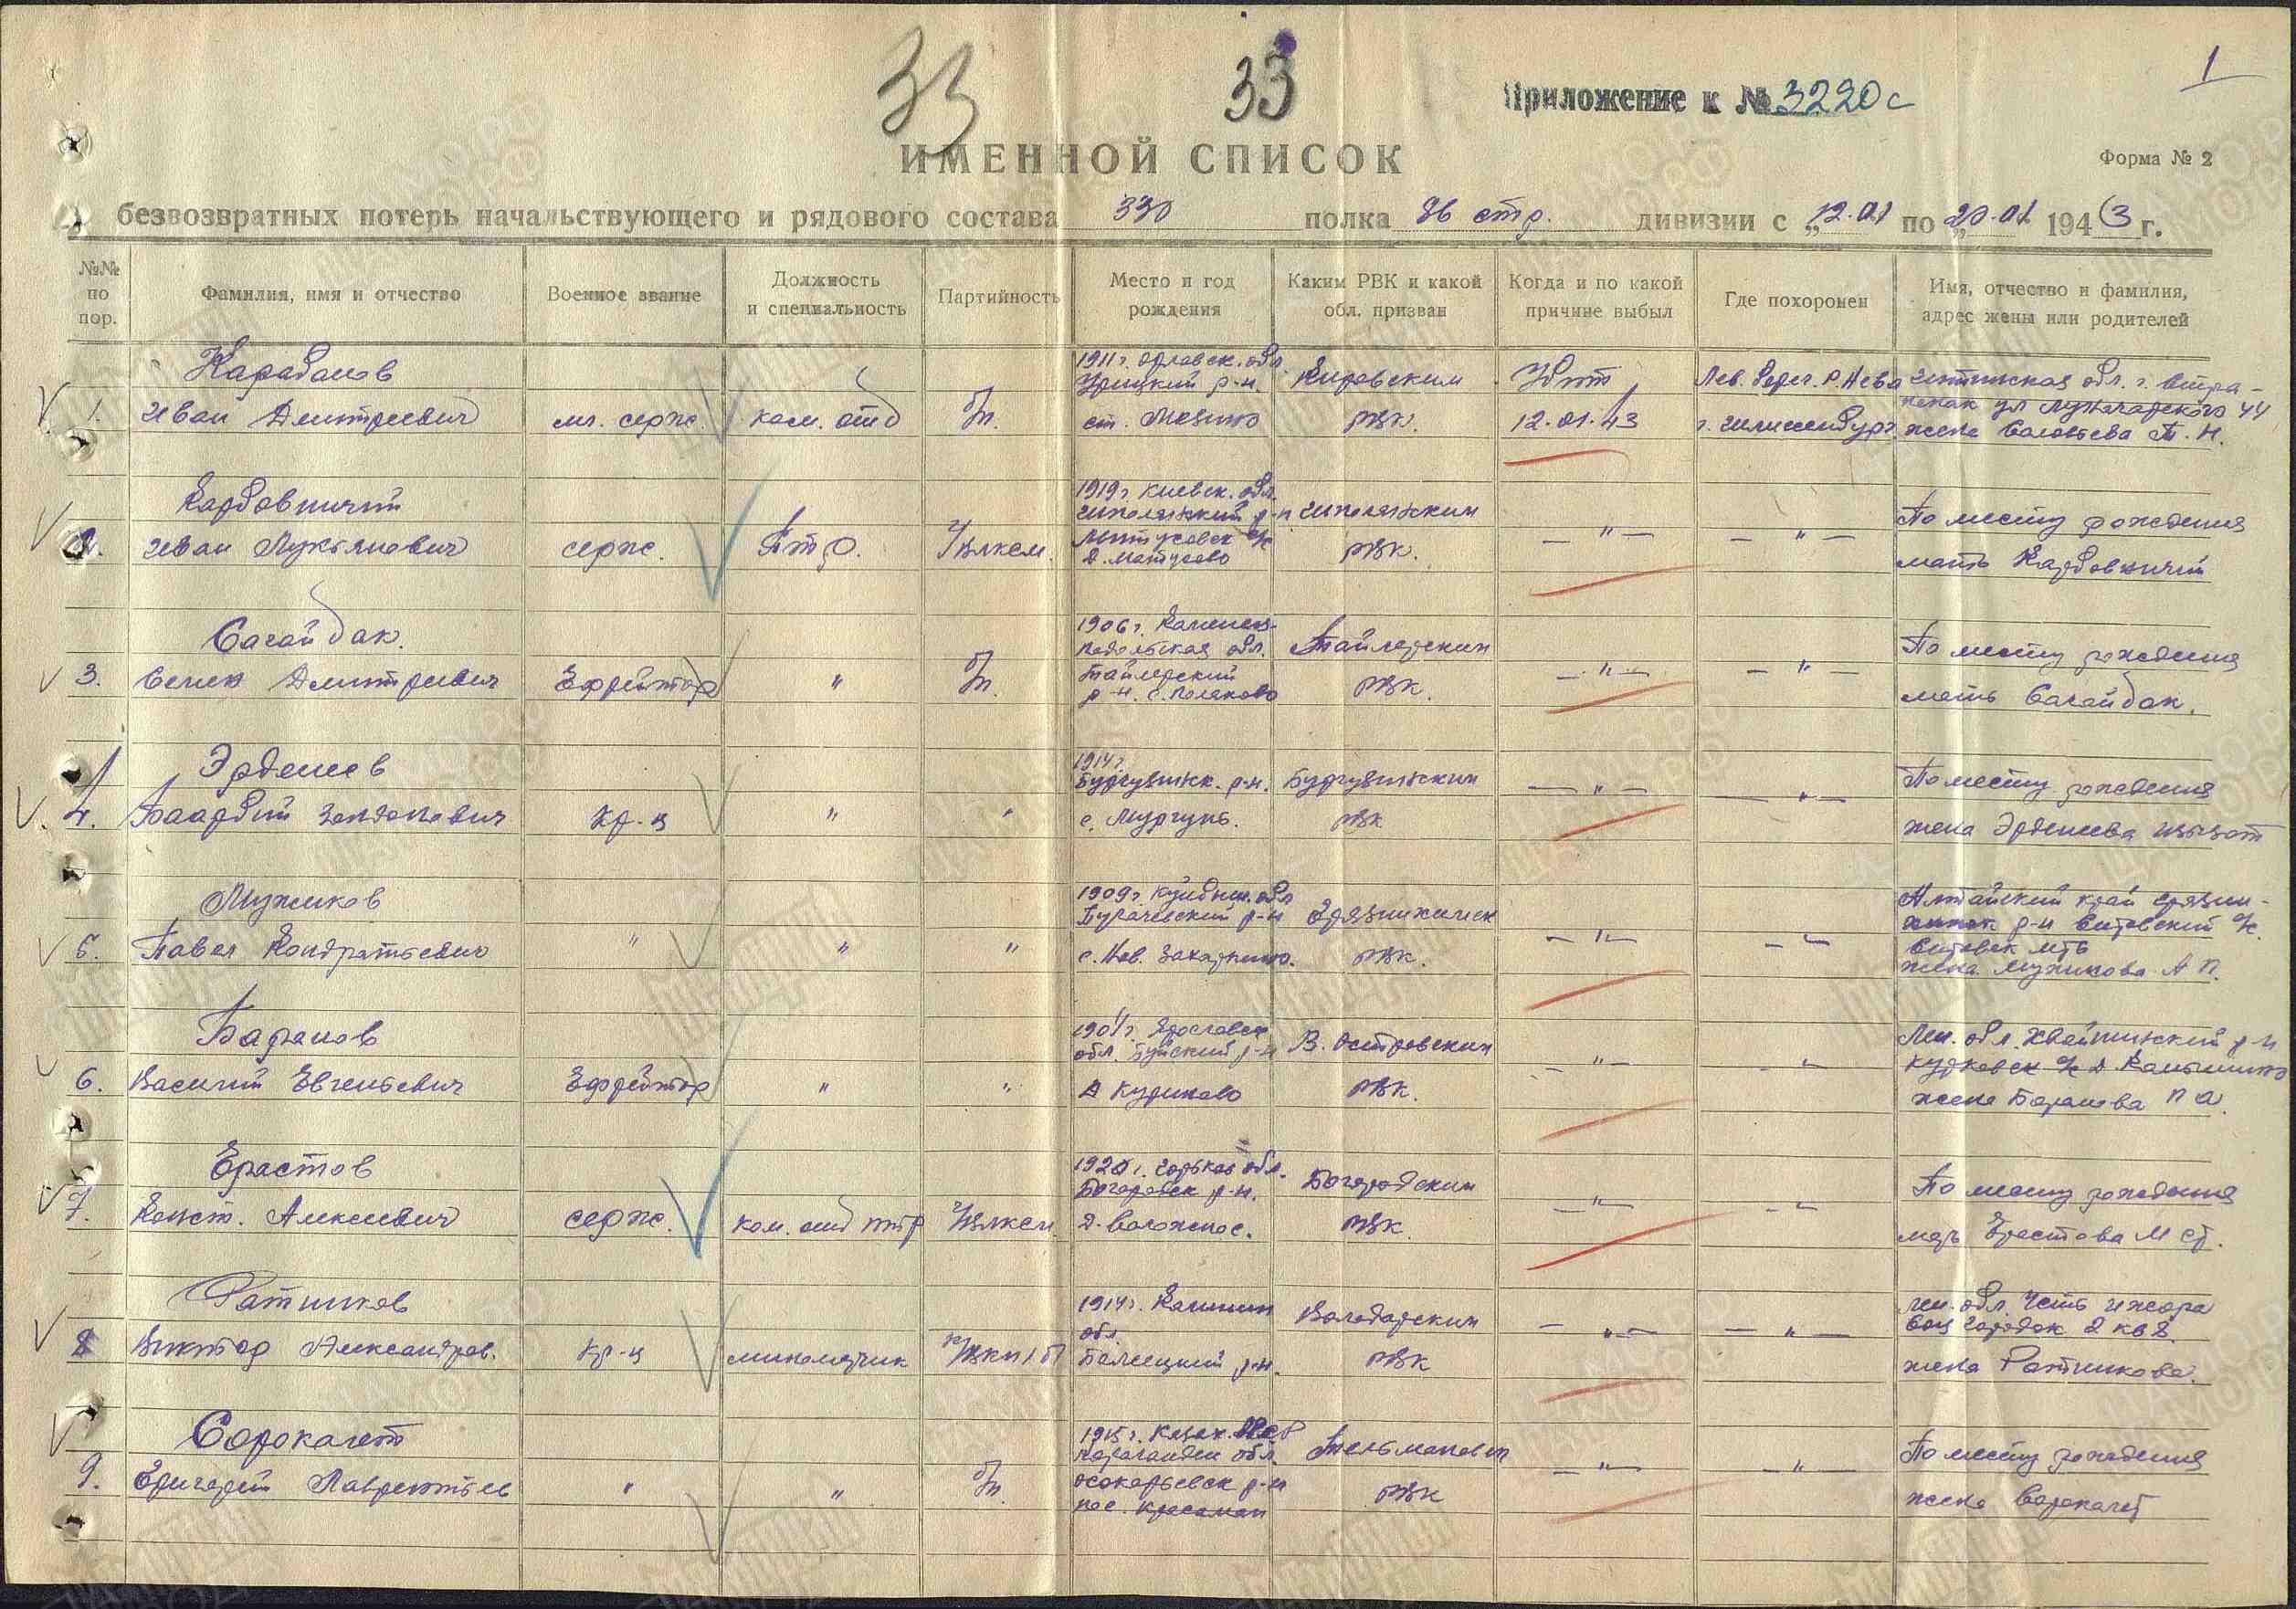 33
33
Приложение к № 3220с
1
ИМЕННОЙ СПИСОК
Форма № 2
безвозвратных потерь начальствующего и рядового состава 330 полка 86 стр. дивизии с „12.01 по „20.01 1943 г.
№№ по пор.
Фамилия, имя и отчество
Военное звание
Должность и специальность
Партийность
Место и год рождения
Каким РВК и какой обл. призван
Когда и по какой причине выбыл
Где похоронен
Имя, отчество и фамилия, адрес жены или родителей
1.
Карабанов
Иван Дмитриевич
мл. серж.
ком. отд
б/п.
1911 г. Орловск. обл.
Урицкий р-н.
ст.
Кировским
РВК.
Убит
12.01.43
Лев. берег. р. Нева
г. Шлиссельбург
ул Луначарского 44
жена Соловьева Т. Н.
2.
Карбовничий
Иван Лукьянович
серж.
ВЛКСМ.
1919 г. Киевск. обл.
Шполянский р-н
д. Матусово
Шполянским
РВК.
— " —
— " —
По месту рождения
мать Карбовничий
3.
Сагайдак.
Семен Дмитриевич
Ефрейтор
"
б/п.
1906 г. Каменец-
Подольская обл.
р-н. с. Поляково
РВК.
— " —
— " —
По месту рождения
мать Сагайдак.
4.
Эрденеев
кр-ц
"
"
1914 г.
с. Мургунь.
РВК
— " —
— " —
По месту рождения
жена Эрденеева
5.
Мужиков
Павел Кондратьевич
"
"
"
1909 г. Куйбыш. обл
р-н
с. Нов. Захаркино.
РВК.
— " —
— " —
Алтайский край
р-н
жена Мужикова А П.
6.
Баранов
Василий Евгеньевич
Ефрейтор
"
"
Ярославск
обл. Буйский р-н
д Куриково
В. Островским
РВК.
— " —
— " —
Лен. обл. Хвойнинский р-н
жена Баранова П А.
7.
Ерастов
Конст. Алексеевич
серж.
ком. отд птр
ВЛКСМ.
Горьков обл.
Богородск р-н.
Богородским
РВК.
— " —
— " —
По месту рождения
Ерастова М
8
Ратников
Виктор Александров.
кр-ц
минометчик
1914 г. Калинин
обл.
р-н.
Володарским
РВК
— " —
— " —
Лен. обл. Усть Ижора
Соц городок 2 кв 8.
жена Ратникова.
9.
Сорокалет
Григорий Лаврентьев
"
"
б/п.
1915 г. Казах. ССР
Караганден обл.
р-н
пос.
РВК
— " —
— " —
По месту рождения
жена Сорокалет